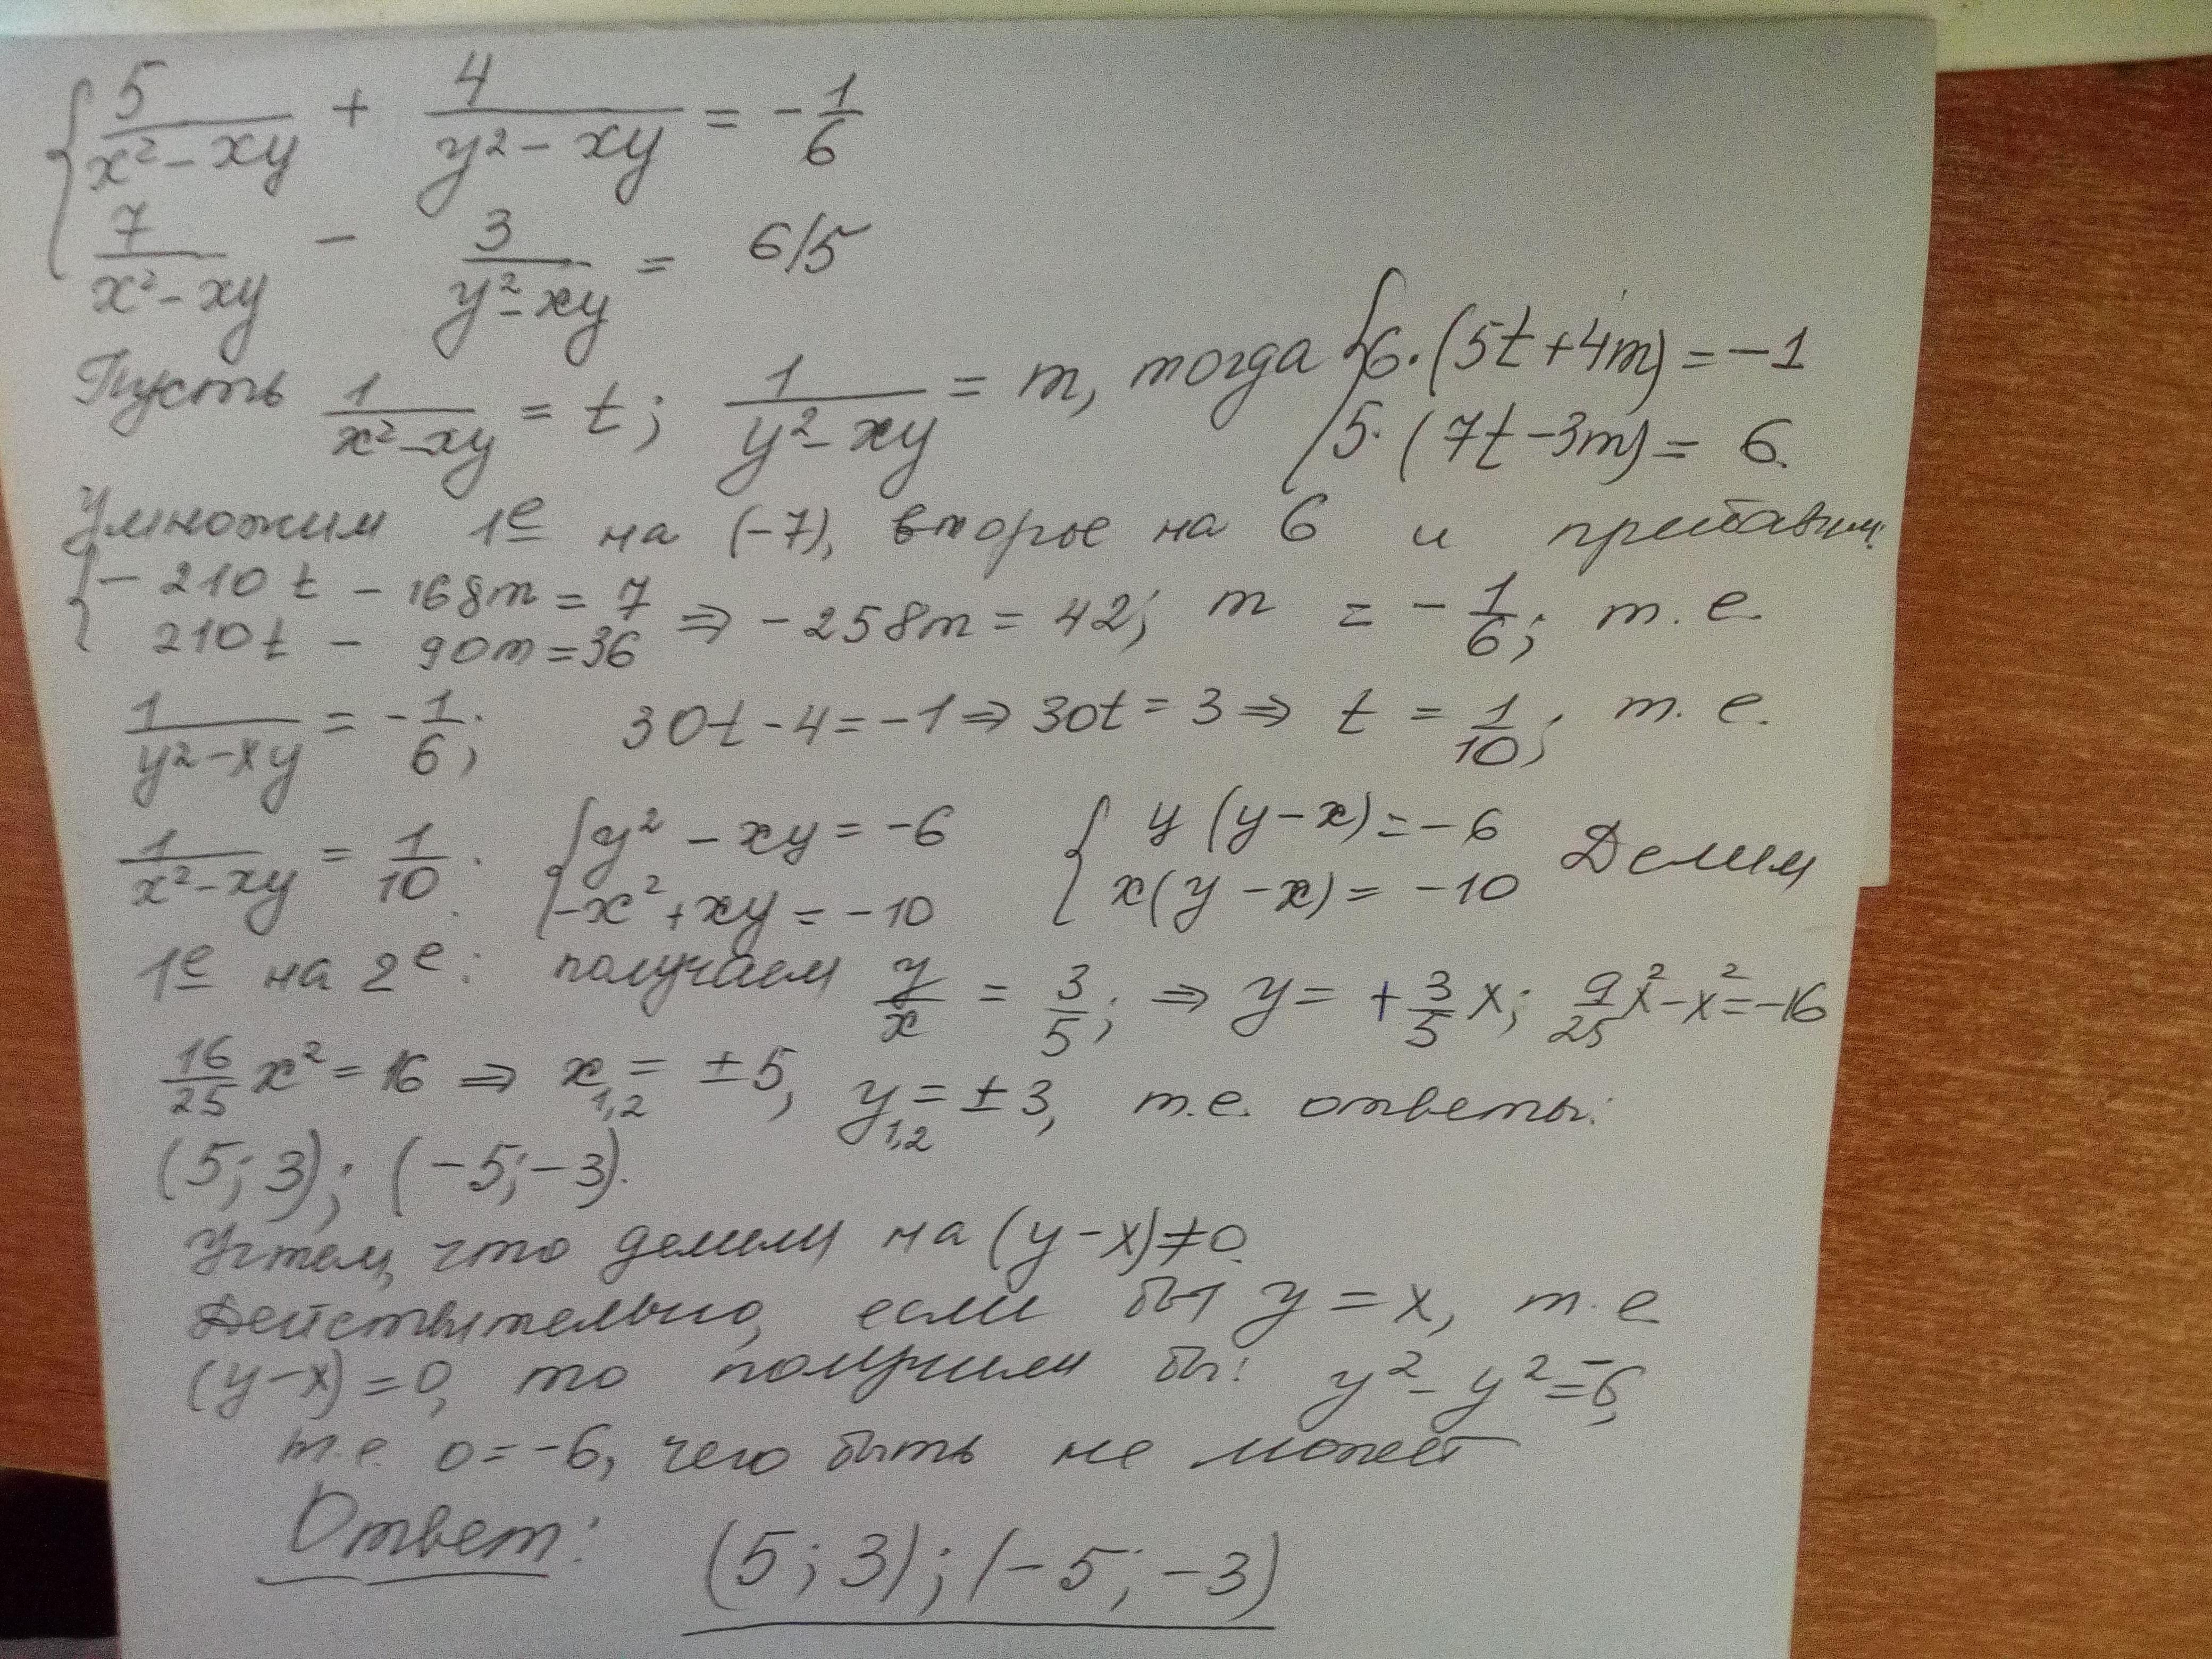 { 5/(x² - xy) + 4/(y² - xy) = - 1/6
7/(x² - xy) - 3/(y² - xy) = 6/5
Пусть 1/(x² - xy) = t; 1/(y² - xy) = m, тогда { 6·(5t + 4m) = -1
5·(7t - 3m) = 6.
Умножим 1е на (-7), второе на 6 и прибавим:
{ - 210t - 168m = 7
210t - 90m = 36 ⇒ - 258m = 42; m = - 1/6; т.е.
1/(y² - xy) = - 1/6; 30t - 4 = -1 ⇒ 30t = 3 ⇒ t = 1/10; т.е.
1/(x² - xy) = 1/10. { y² - xy = -6 { y(y - x) = -6 Делим
-x² + xy = -10 x(y - x) = -10
1е на 2е: получаем y/x = 3/5; ⇒ y = + 3/5 x; 9/25 x² - x² = -16
16/25 x² = 16 ⇒ x1,2 = ± 5, y1,2 = ± 3, т.е. ответы:
(5; 3); (-5; -3).
Учтем, что делили на (y - x) ≠ 0.
Действительно, если бы y = x, т.е
(y - x) = 0, то получили бы: y² - y² = -6,
т.е. 0 = -6, чего быть не может
Ответ: (5; 3); (-5; -3)